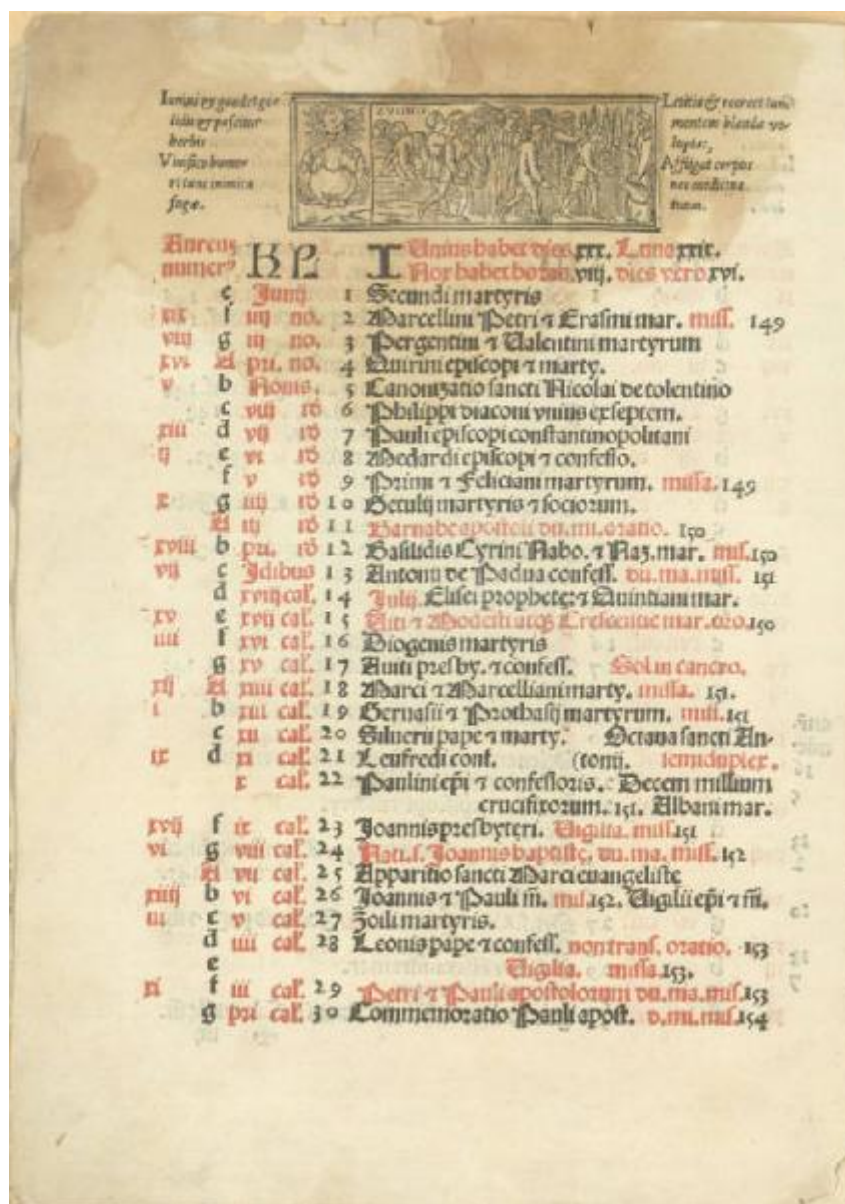 Iunius & gaudet gra
herbis
fugæ.
IVNIVS
Letitia & recreet tunc
mentem blanda vo-
luptas,
Affligat corpus
nec medicina
tuum.
Aureus numerus KL IUnius habet dies xxx. Luna xxix.
Nox habet horas viij. dies vero xvi.
e Junij 1 Secundi martyris
xix f iiij no. 2 Marcellini Petri ⁊ Erasmi mar. miss. 149
viij g iij no. 3 Pergentini ⁊ Ualentini martyrum
xvi A pri. no. 4 Quirini episcopi ⁊ marty.
v b Nonis. 5 Canonizatio sancti Nicolai de tolentino
c viij id 6 Philippi diaconi vnius ex septem.
xiii d vij id 7 Pauli episcopi constantinopolitani
ij e vi id 8 Medardi episcopi ⁊ confesso.
f v id 9 Primi ⁊ Feliciani martyrum. missa. 149
x g iiij id 10 Getulij martyris ⁊ sociorum.
A iij id 11 Barnabe apostoli du. mi. oratio. 150
xviii b pri. id 12 Basilidis Cyrini Nabo. ⁊ Naz. mar. mis. 150
vij c Idibus 13 Antonii de Padua confess. du. ma. miss. 151
d xviij cal. 14 Julij Elisei prophetę ⁊ Quintiani mar.
xv e xvij cal. 15 Uiti ⁊ Modesti atqȝ Crescentie mar. oro. 150
iiii f xvi cal. 16 Diogenis martyris
g xv cal. 17 Auiti presby. ⁊ confess. Sol in cancro.
xij A xiiii cal. 18 Marci ⁊ Marcelliani marty. missa. 151.
i b xiii cal. 19 Geruasii ⁊ Prothasij martyrum. miss. 151
c xii cal. 20 Siluerii pape ⁊ marty. Octaua sancti An-
ix d xi cal. 21 Leufredi conf. (tonij. semiduplex.
x cal. 22 Paulini ep̄i ⁊ confessoris. Decem millium
crucifixorum. 151. Albani mar.
xvij f ix cal. 23 Joannis presbyteri. Uigilia. miss. 151
vi g viii cal. 24 Nati. s. Joannis baptistę, du. ma. miss. 152
A vii cal. 25 Apparitio sancti Marci euangeliste
xiiij b vi cal. 26 Joannis ⁊ Pauli m̄. mis. 152. Uigilii ep̄i ⁊ m̄.
iii c v cal. 27 Zoili martyris.
d iiii cal. 28 Leonis pape ⁊ confess. non trans. oratio. 153
e Uigilia. missa. 153.
xi f iii cal. 29 Petri ⁊ Pauli apostolorum du. ma. mis. 153
g pri cal. 30 Commemoratio Pauli apost. d. mi. mis. 154